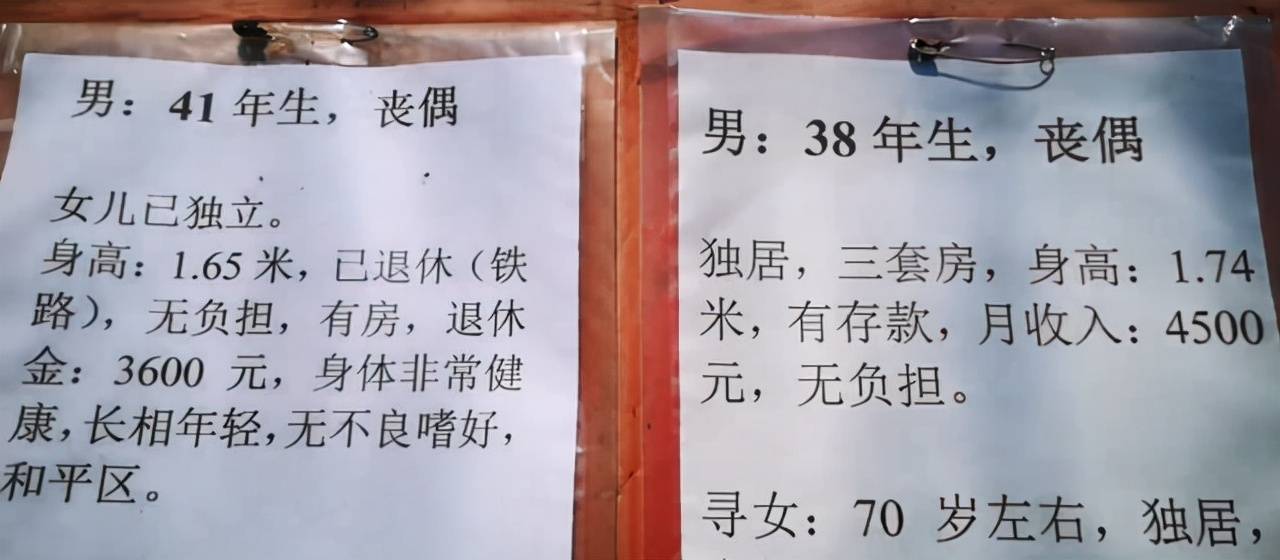 男：41 年生，丧偶
女儿已独立。
身高：1.65 米，已退休（铁
路），无负担，有房，退休
金：3600 元，身体非常健
康，长相年轻，无不良嗜好，
和平区。
男：38 年生，丧偶
独居，三套房，身高：1.74
米，有存款，月收入：4500
元，无负担。
寻女：70 岁左右，独居，